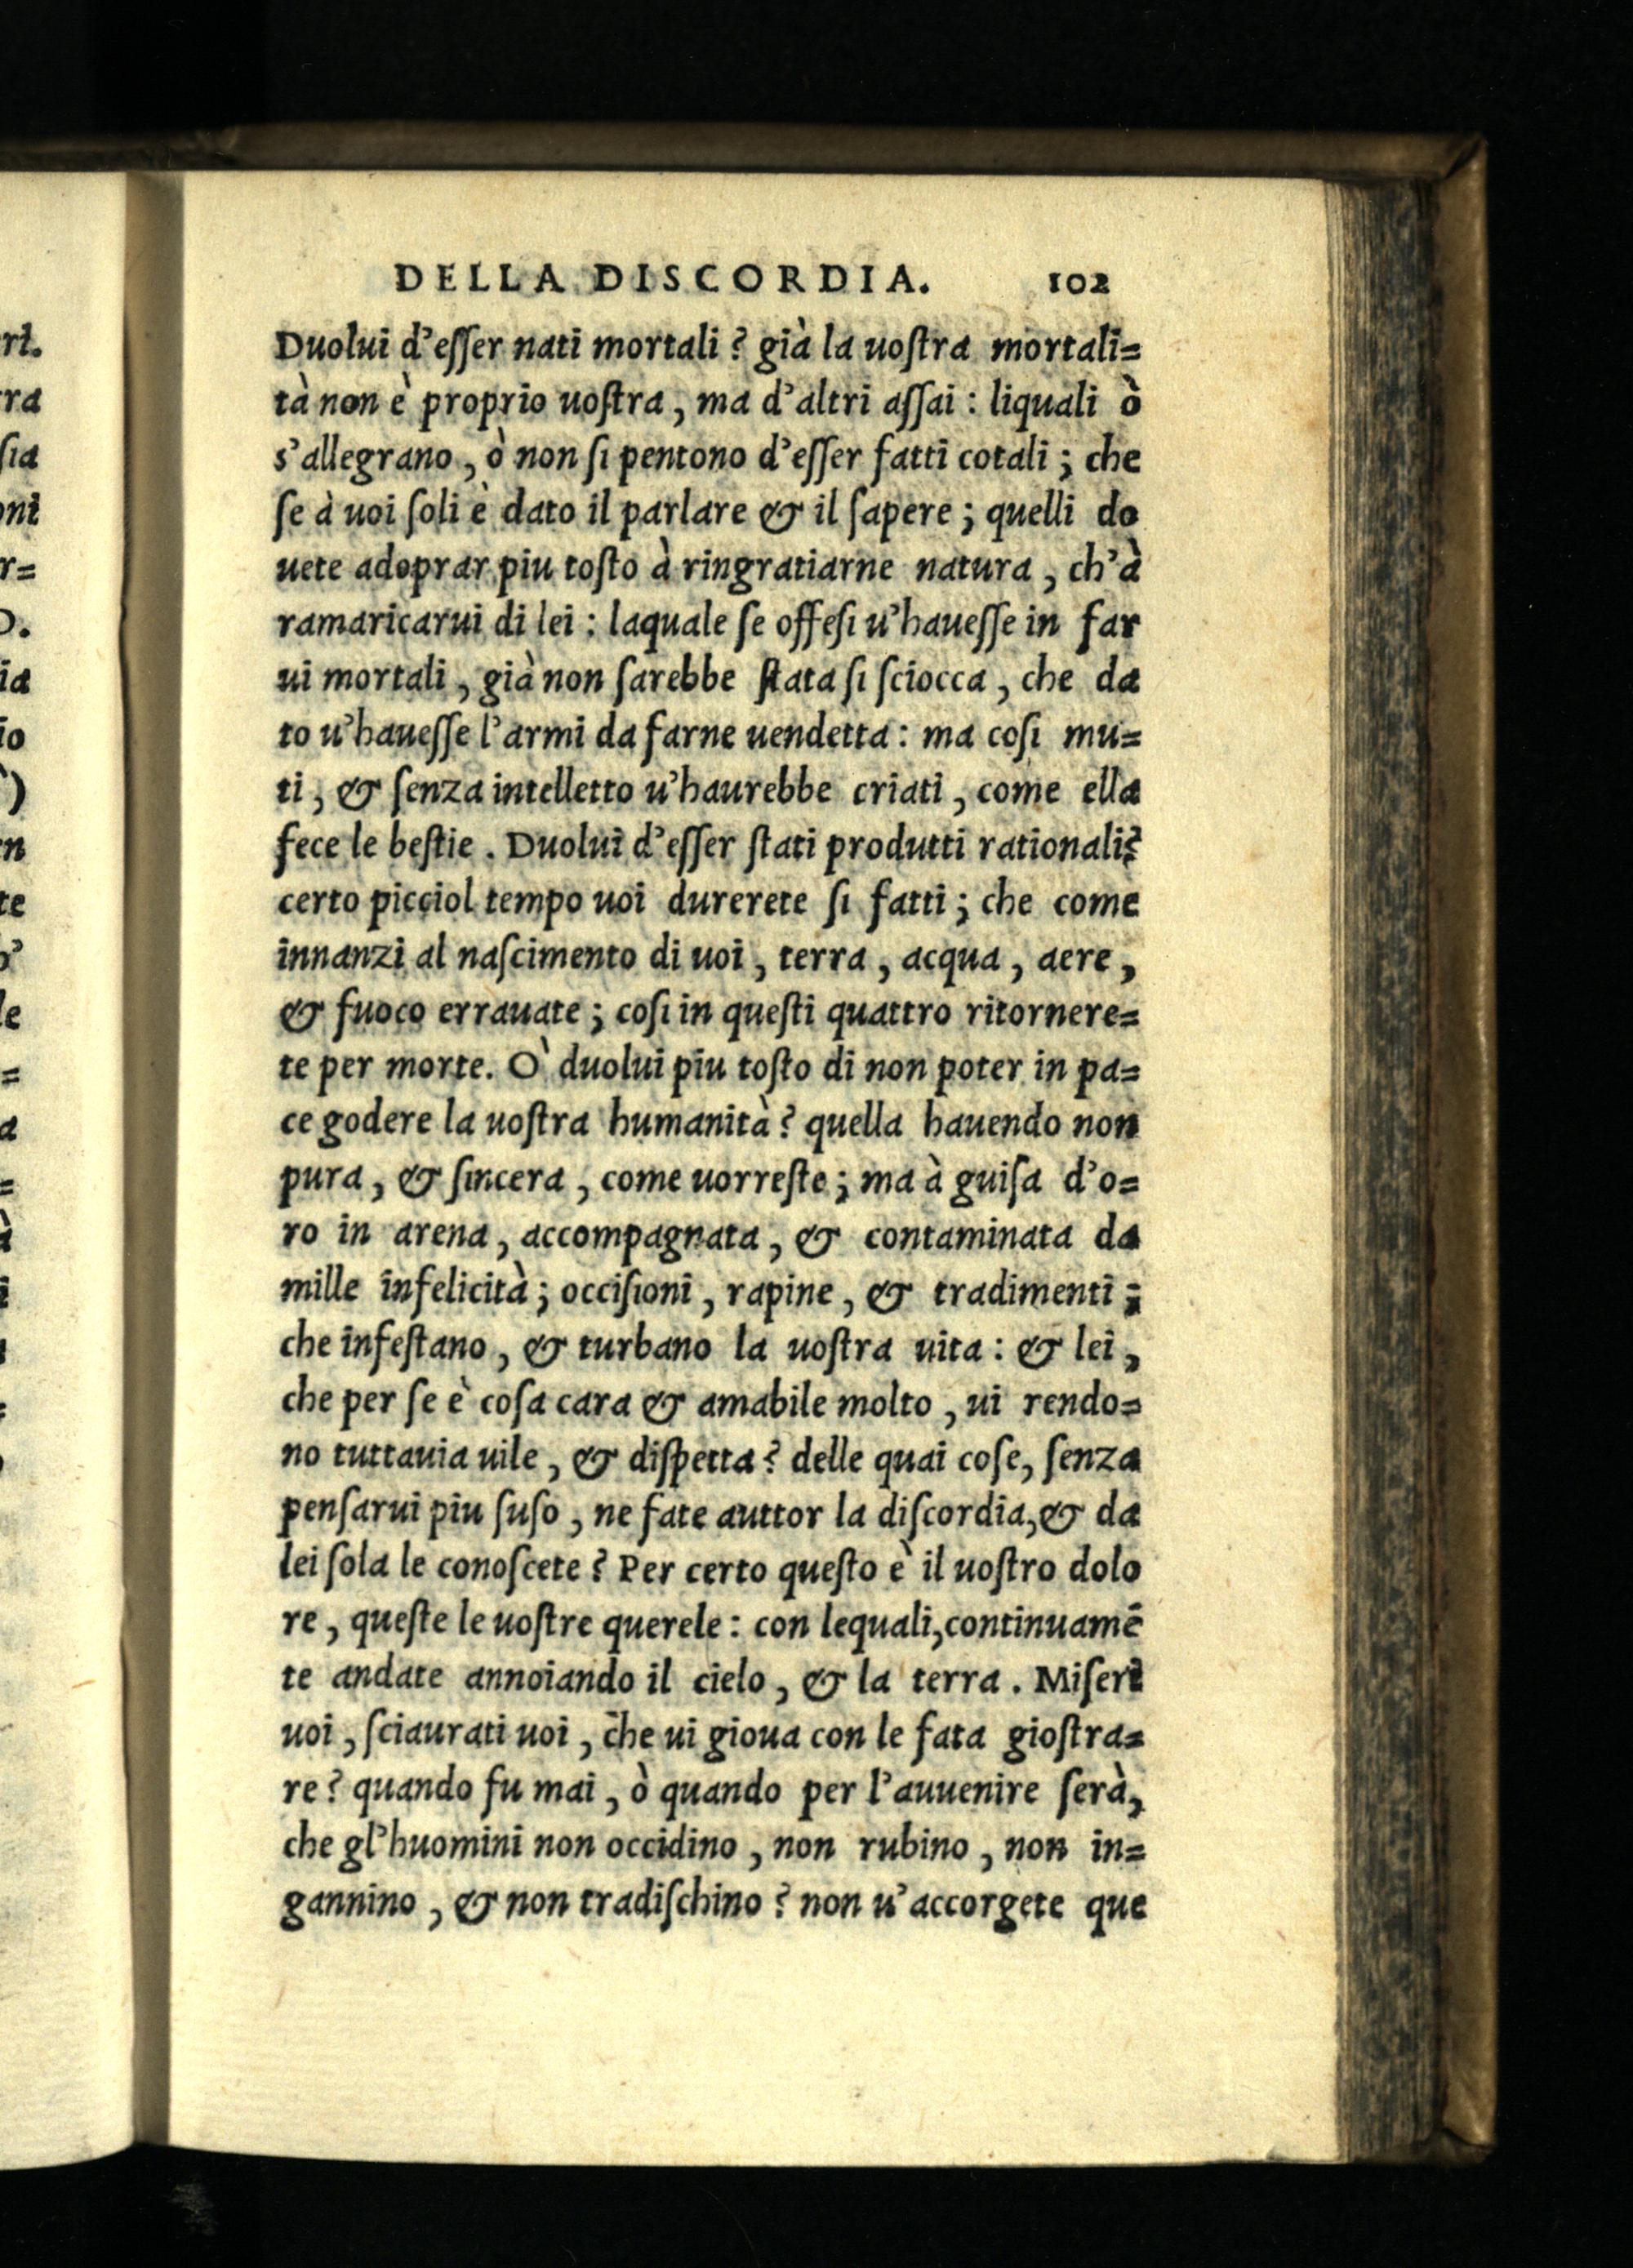 DELLA DISCORDIA. 102
Duolui d'eſſer nati mortali? già la uoſtra mortali=
tà non è proprio uoſtra, ma d'altri aſſai: liquali ò
s'allegrano, ò non ſi pentono d'eſſer fatti cotali; che
ſe à uoi ſoli è dato il parlare & il ſapere; quelli do
uete adoprar piu toſto à ringratiarne natura, ch'à
ramaricarui di lei: laquale ſe offeſi u'haueſſe in far
ui mortali, già non ſarebbe ſtata ſi ſciocca, che da
to u'haueſſe l'armi da farne uendetta: ma coſi mu=
ti, & ſenza intelletto u'haurebbe criati, come ella
fece le beſtie. Duolui d'eſſer ſtati produtti rationali?
certo picciol tempo uoi durerete ſi fatti; che come
innanzi al naſcimento di uoi, terra, acqua, aere,
& fuoco errauate; coſi in queſti quattro ritornere=
te per morte. O' duolui piu toſto di non poter in pa=
ce godere la uoſtra humanità? quella hauendo non
pura, & ſincera, come uorreſte; ma à guiſa d'o=
ro in arena, accompagnata, & contaminata da
mille infelicità; occiſioni, rapine, & tradimenti;
che infeſtano, & turbano la uoſtra uita: & lei,
che per ſe è coſa cara & amabile molto, ui rendo=
no tuttauia uile, & diſpetta? delle quai coſe, ſenza
penſarui piu ſuſo, ne fate auttor la diſcordia, & da
lei ſola le conoſcete? Per certo queſto è il uoſtro dolo
re, queſte le uoſtre querele: con lequali, continuamē
te andate annoiando il cielo, & la terra. Miſeri
uoi, ſciaurati uoi, che ui gioua con le fata gioſtra=
re? quando fu mai, ò quando per l'auuenire ſerà,
che gl'huomini non occidino, non rubino, non in=
gannino, & non tradiſchino? non u'accorgete que